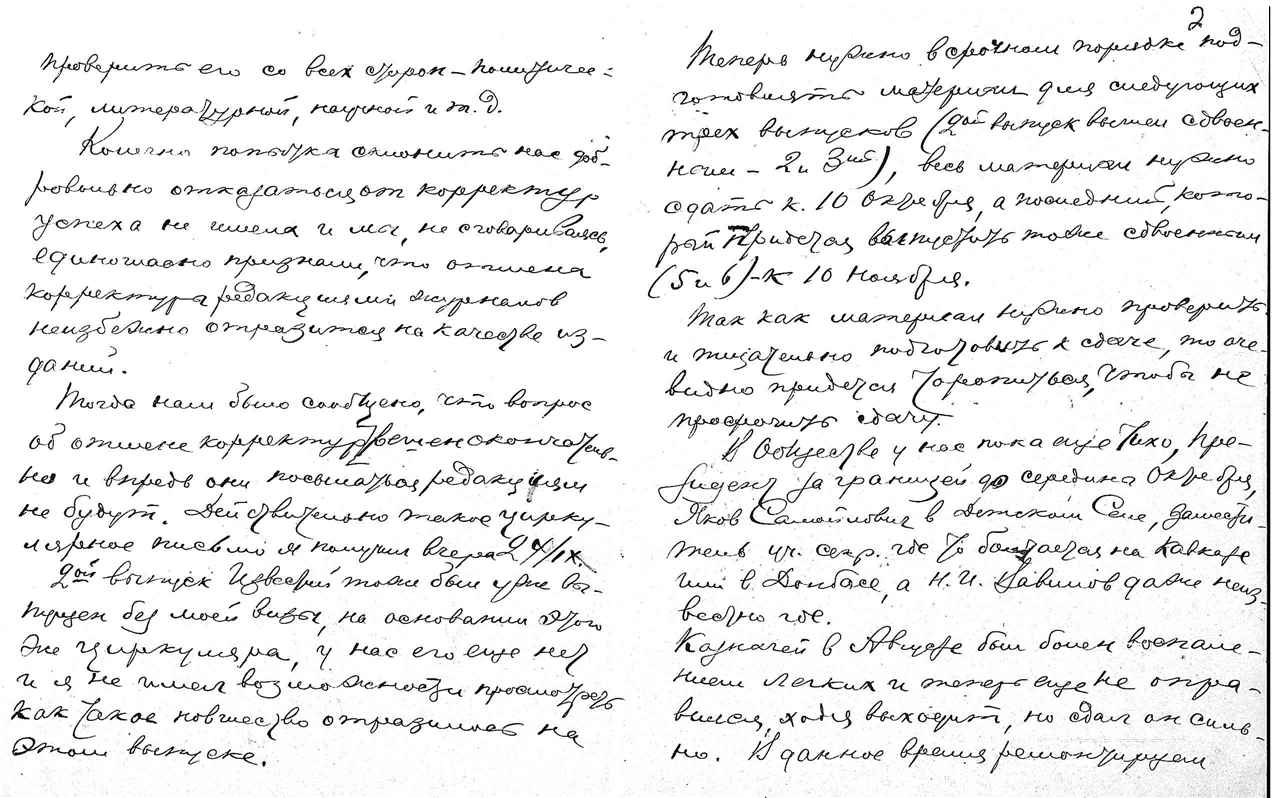 проверить его со всех сторон – политичес-
кой, литературной, научной и т.д.
Конечно попытка склонить нас доб-
ровольно отказаться от корректур
успеха не имела и мы, не сговариваясь,
единогласно признали, что отмена
корректуры редакциями журналов
неизбежно отразится на качестве из-
даний.
Тогда нам было сообщено, что вопрос
об отмене корректур решен окончатель-
но и впредь они посылаться редакциям
не будут. Действительно такое цирку-
лярное письмо я получил вчера 24/IX.
2ой выпуск Известий тоже был уже вы-
пущен без моей визы, на основании этого
же циркуляра, у нас его еще нет
и я не имел возможности просмотреть
как такое новшество отразилось на
этом выпуске.
2
Теперь нужно в срочном порядке под-
готовлять материал для следующих
трех выпусков (2ой выпуск вышел сдвоен-
ным – 2 и 3ий), весь материал нужно
сдать к. 10 Октября, а последний, кото-
рый придется выпустить тоже сдвоенным
(5 и 6) – к 10 Ноября.
Так как материал нужно проверить
и тщательно подготовить к сдаче, то оче-
видно придется торопиться, чтобы не
просрочить сдачу.
В Обществе у нас пока еще тихо, пре-
зидент за границей до середины Октября,
Яков Самойлович в Детском Селе, замести-
тель уч. секр. где то болтается на Кавказе
или в Донбасе, а Н.И. Вавилов даже неиз-
вестно где.
Казначей в Августе был болен воспале-
нием легких и теперь еще не опра-
вился, хотя выходит, но сдал он силь-
но. В данное время ремонтируем